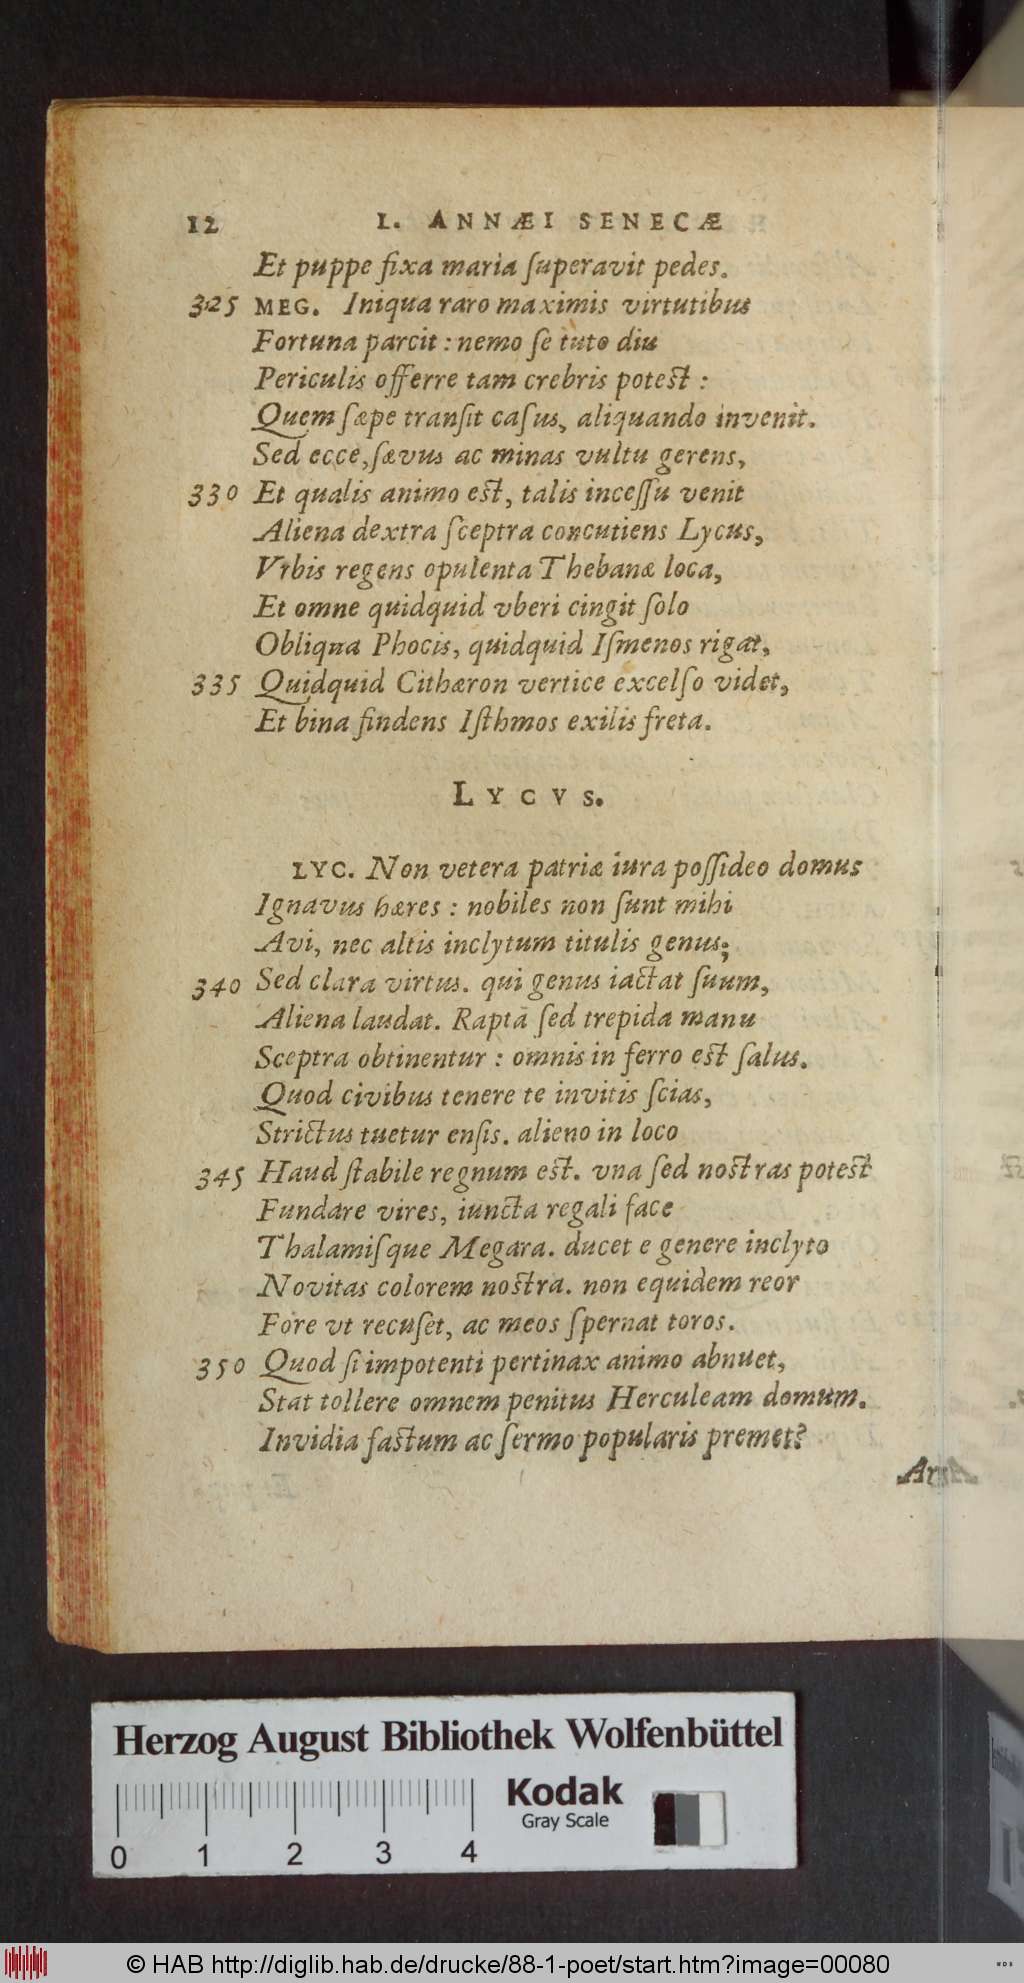 12 L. ANNÆI SENECÆ
Et puppe fixa maria ſuperavit pedes.
325 MEG. Iniqua raro maximis virtutibus
Fortuna parcit : nemo ſe tuto diu
Periculis offerre tam crebris poteſt :
Quem ſæpe tranſit caſus, aliquando invenit.
Sed ecce, ſævus ac minas vultu gerens,
330 Et qualis animo eſt, talis inceſſu venit
Aliena dextra ſceptra concutiens Lycus,
Vrbis regens opulenta Thebanæ loca,
Et omne quidquid vberi cingit ſolo
Obliqua Phocis, quidquid Iſmenos rigat,
335 Quidquid Cithæron vertice excelſo videt,
Et bina findens Iſthmos exilis freta.
LYCVS.
LYC. Non vetera patriæ iura poſſideo domus
Ignavus hæres : nobiles non ſunt mihi
Avi, nec altis inclytum titulis genus;
340 Sed clara virtus. qui genus iactat ſuum,
Aliena laudat. Raptā ſed trepida manu
Sceptra obtinentur : omnis in ferro eſt ſalus.
Quod civibus tenere te invitis ſcias,
Strictus tuetur enſis. alieno in loco
345 Haud ſtabile regnum eſt. vna ſed noſtras poteſt
Fundare vires, iuncta regali face
Thalamiſque Megara. ducet e genere inclyto
Novitas colorem noſtra. non equidem reor
Fore vt recuſet, ac meos ſpernat toros.
350 Quod ſi impotenti pertinax animo abnuet,
Stat tollere omnem penitus Herculeam domum.
Invidia faſtum ac ſermo popularis premet?
Ars
Herzog August Bibliothek Wolfenbüttel
Kodak
Gray Scale
0 1 2 3 4
© HAB http://diglib.hab.de/drucke/88-1-poet/start.htm?image=00080